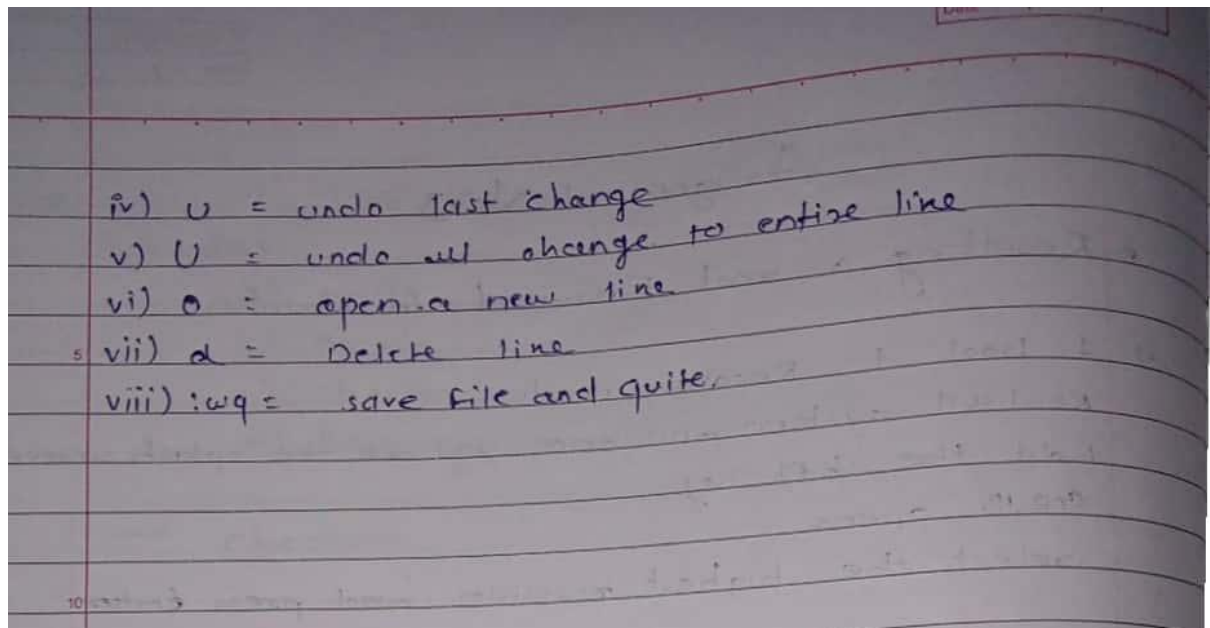 iv) u = undo last change
v) U = undo all change to entire line
vi) o = open a new line
5 vii) d = Delete line
viii) :wq = save file and quite.
10